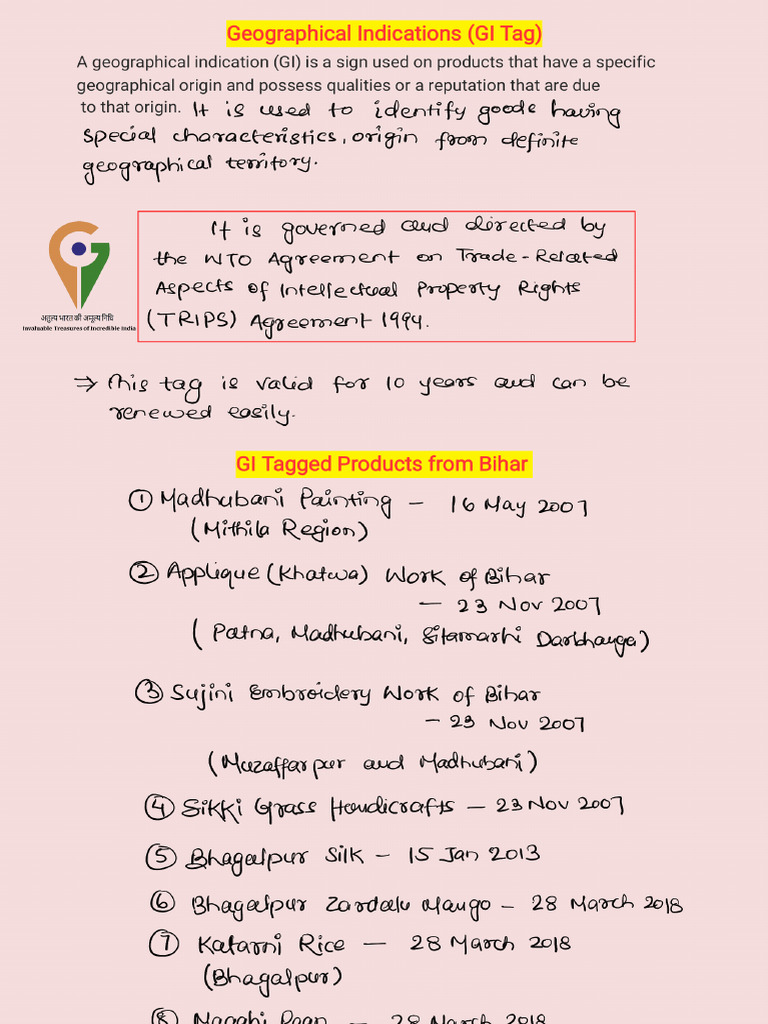 Geographical Indications (GI Tag)
A geographical indication (GI) is a sign used on products that have a specific
geographical origin and possess qualities or a reputation that are due
to that origin. It is used to identify goods having
special characteristics, origin from definite
geographical territory.
It is governed and directed by
the WTO Agreement on Trade-Related
Aspects of Intellectual Property Rights
(TRIPS) Agreement 1994.
अतुल्य भारत की अमूल्य निधि
Invaluable Treasures of Incredible India
⇒ This tag is valid for 10 years and can be
renewed easily.
GI Tagged Products from Bihar
① Madhubani Painting – 16 May 2007
(Mithila Region)
② Applique (Khatwa) Work of Bihar
– 23 Nov 2007
(Patna, Madhubani, Sitamarhi Darbhanga)
③ Sujini Embroidery Work of Bihar
– 23 Nov 2007
(Muzaffarpur and Madhubani)
④ Sikki Grass Handicrafts – 23 Nov 2007
⑤ Bhagalpur Silk – 15 Jan 2013
⑥ Bhagalpur Zardalu Mango – 28 March 2018
⑦ Katarni Rice – 28 March 2018
(Bhagalpur)
⑧ Magahi Paan – 28 March 2018